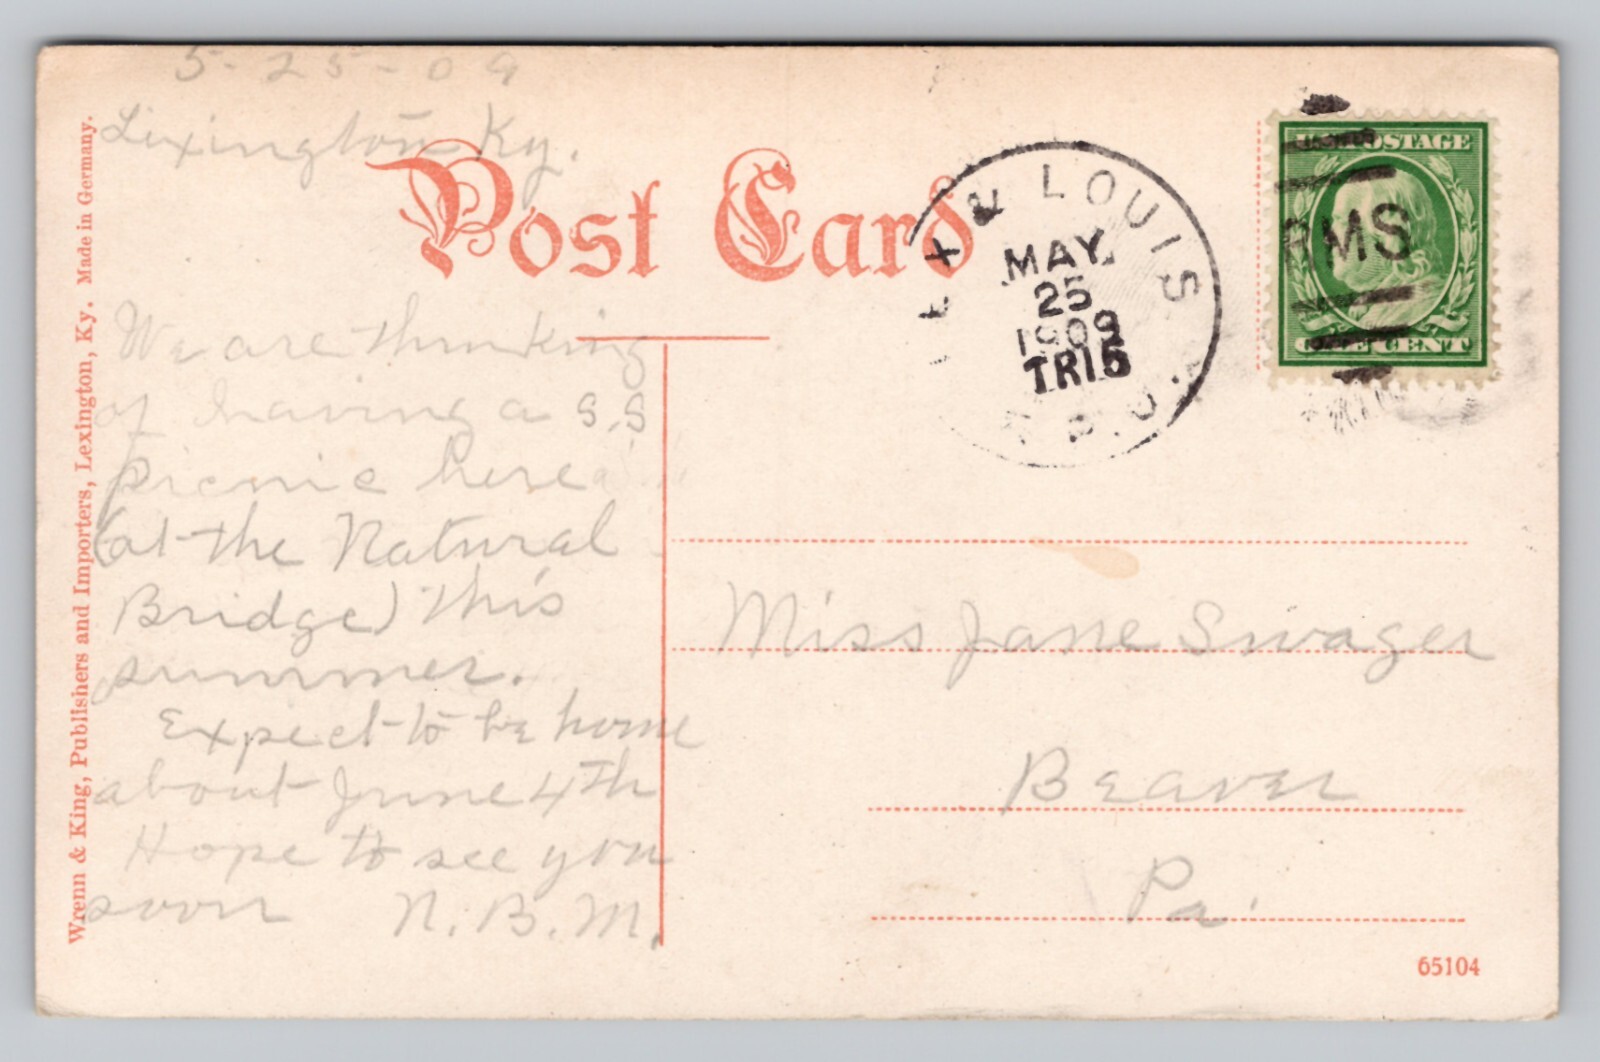 5-25-09
Lexington Ky.
Post Card
LEX & LOUIS
MAY
25
1909
TR15
R.P.O.
RMS
POSTAGE
ONE CENT
We are thinking
of having a S.S
picnic here
(at the Natural
Bridge) this
summer.
Expect to be home
about June 4th
Hope to see you
soon N.B.M.
Miss Jane Swager
Beaver
Pa.
Wrenn & King, Publishers and Importers, Lexington, Ky. Made in Germany.
65104